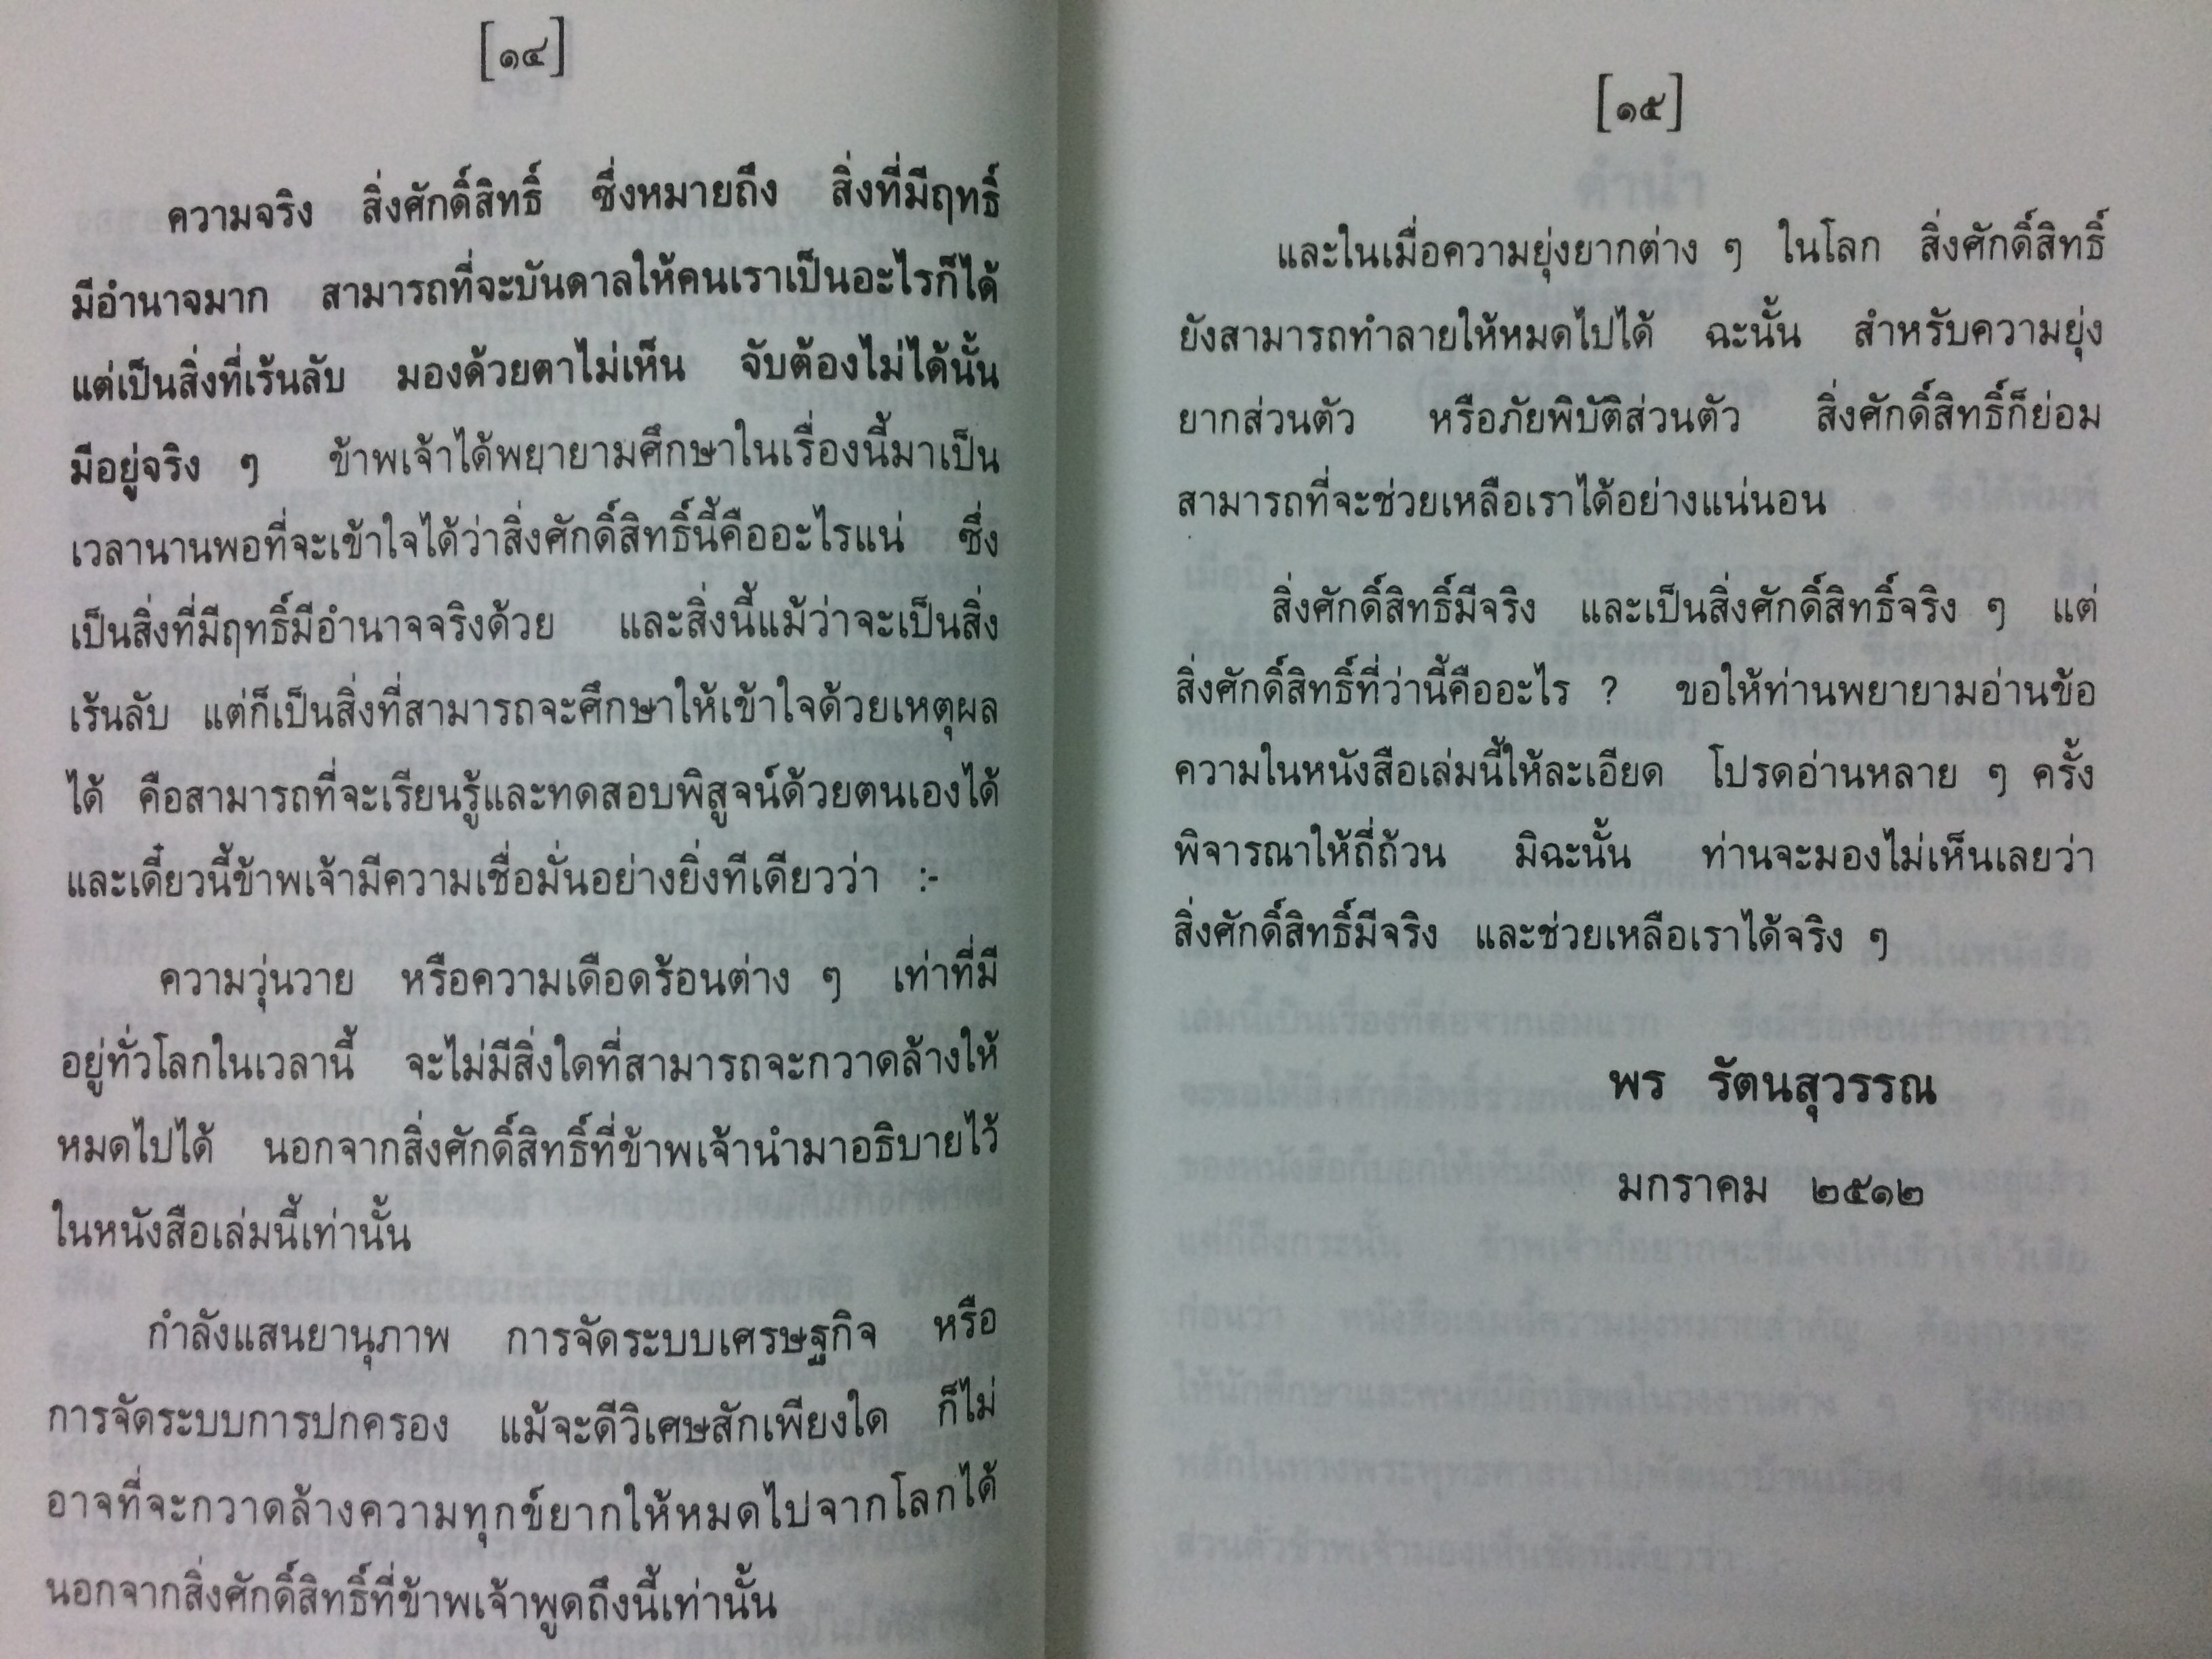 [๑๔]
ความจริง สิ่งศักดิ์สิทธิ์ ซึ่งหมายถึง สิ่งที่มีฤทธิ์
มีอำนาจมาก สามารถที่จะบันดาลให้คนเราเป็นอะไรก็ได้
แต่เป็นสิ่งที่เร้นลับ มองด้วยตาไม่เห็น จับต้องไม่ได้นั้น
มีอยู่จริง ๆ ข้าพเจ้าได้พยายามศึกษาในเรื่องนี้มาเป็น
เวลานานพอที่จะเข้าใจได้ว่าสิ่งศักดิ์สิทธิ์นี้คืออะไรแน่ ซึ่ง
เป็นสิ่งที่มีฤทธิ์มีอำนาจจริงด้วย และสิ่งนี้แม้ว่าจะเป็นสิ่ง
เร้นลับ แต่ก็เป็นสิ่งที่สามารถจะศึกษาให้เข้าใจด้วยเหตุผล
ได้ คือสามารถที่จะเรียนรู้และทดสอบพิสูจน์ด้วยตนเองได้
และเดี๋ยวนี้ข้าพเจ้ามีความเชื่อมั่นอย่างยิ่งทีเดียวว่า :-
ความวุ่นวาย หรือความเดือดร้อนต่าง ๆ เท่าที่มี
อยู่ทั่วโลกในเวลานี้ จะไม่มีสิ่งใดที่สามารถจะกวาดล้างให้
หมดไปได้ นอกจากสิ่งศักดิ์สิทธิ์ที่ข้าพเจ้านำมาอธิบายไว้
ในหนังสือเล่มนี้เท่านั้น
กำลังแสนยานุภาพ การจัดระบบเศรษฐกิจ หรือ
การจัดระบบการปกครอง แม้จะดีวิเศษสักเพียงใด ก็ไม่
อาจที่จะกวาดล้างความทุกข์ยากให้หมดไปจากโลกได้
นอกจากสิ่งศักดิ์สิทธิ์ที่ข้าพเจ้าพูดถึงนี้เท่านั้น
[๑๕]
และในเมื่อความยุ่งยากต่าง ๆ ในโลก สิ่งศักดิ์สิทธิ์
ยังสามารถทำลายให้หมดไปได้ ฉะนั้น สำหรับความยุ่ง
ยากส่วนตัว หรือภัยพิบัติส่วนตัว สิ่งศักดิ์สิทธิ์ก็ย่อม
สามารถที่จะช่วยเหลือเราได้อย่างแน่นอน
สิ่งศักดิ์สิทธิ์มีจริง และเป็นสิ่งศักดิ์สิทธิ์จริง ๆ แต่
สิ่งศักดิ์สิทธิ์ที่ว่านี้คืออะไร ? ขอให้ท่านพยายามอ่านข้อ
ความในหนังสือเล่มนี้ให้ละเอียด โปรดอ่านหลาย ๆ ครั้ง
พิจารณาให้ถี่ถ้วน มิฉะนั้น ท่านจะมองไม่เห็นเลยว่า
สิ่งศักดิ์สิทธิ์มีจริง และช่วยเหลือเราได้จริง ๆ
พร รัตนสุวรรณ
มกราคม ๒๕๑๒